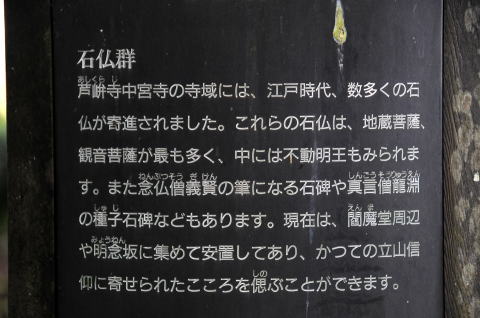 石仏群
芦峅寺中宮寺の寺域には、江戸時代、数多くの石
仏が寄進されました。これらの石仏は、地蔵菩薩、
観音菩薩が最も多く、中には不動明王もみられま
す。また念仏僧義賢の筆になる石碑や真言僧龍淵
の種子石碑などもあります。現在は、閻魔堂周辺
や明念坂に集めて安置してあり、かつての立山信
仰に寄せられたこころを偲ぶことができます。